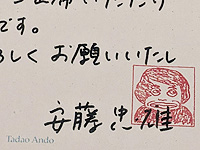 いただ
です。
ろしく お願いいたし
安藤忠雄
Tadao Ando